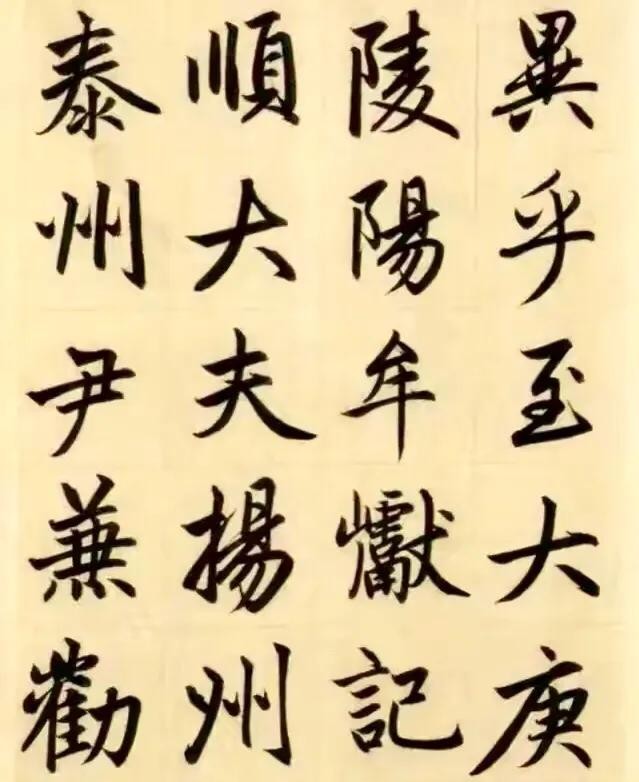 異乎至大庚
陵陽牟巘記
順大夫揚州
泰州尹蕪勸